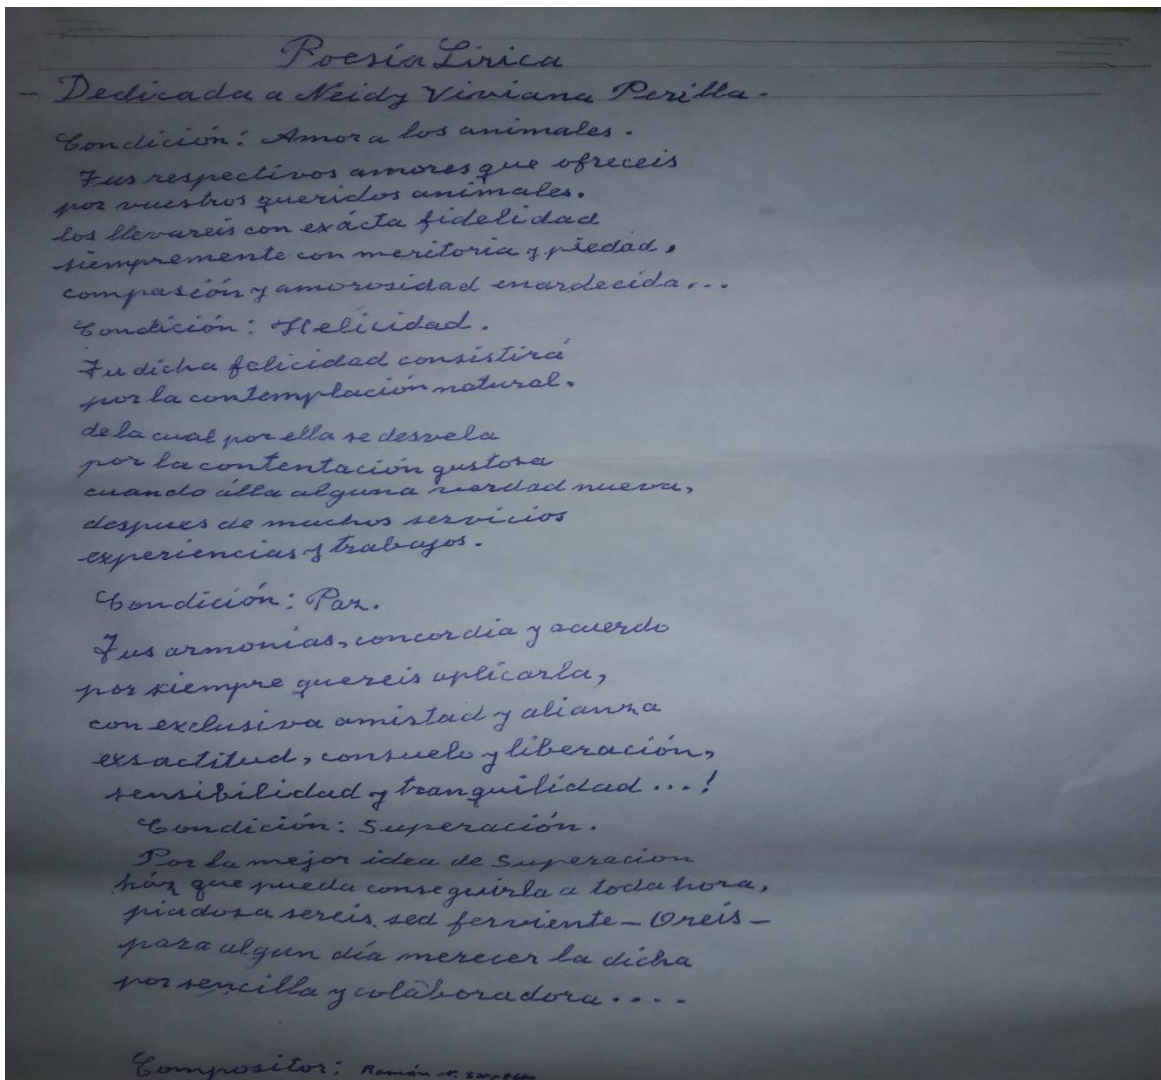 Poesía Lírica
- Dedicada a Neidy Viviana Perilla.
Condición: Amor a los animales.
Tus respectivos amores que ofreceis
por vuestros queridos animales.
los llevareis con exácta fidelidad
siempremente con meritoria y piedad,
compasión y amorosidad enardecida...
Condición: Felicidad.
Tu dicha felicidad consistirá
por la contemplación natural.
de la cual por ella se desvela
por la contentación gustosa
cuando álla alguna verdad nueva,
despues de muchos servicios
experiencias y trabajos.
Condición: Paz.
Tus armonias, concordia y acuerdo
por siempre quereis aplicarla,
con exclusiva amistad y alianza
exsactitud, consuelo y liberación,
sensibilidad y tranquilidad...!
Condición: Superación.
Por la mejor idea de Superación
ház que pueda conseguirla a toda hora,
piadosa sereis, sed ferviente - Oreis -
para algun día merecer la dicha
por sencilla y colaboradora....
Compositor: Ramón N.